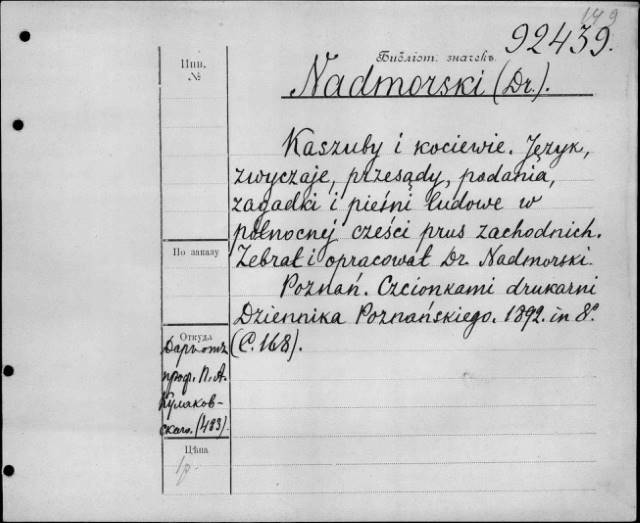 149
92439.
Библіот. значекъ
Инв.
№
Nadmorski (Dr.).
Kaszuby i kociewie. Język,
zwyczaje, przesądy, podania,
zagadki i pieśni ludowe w
północnej cześci prus zachodnich.
Zebrał i opracował Dr. Nadmorski.
По заказу
Poznań. Czcionkami drukarni
Dziennika Poznańskiego. 1892. in 8º.
(С. 168).
Откуда
Даръ отъ
проф. П. А.
Кулаков-
скаго. (483).
Цѣна
1р.